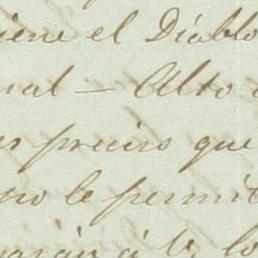 iene el Diablo
nal — Alto
es preciso que
no le permit
á V. lo